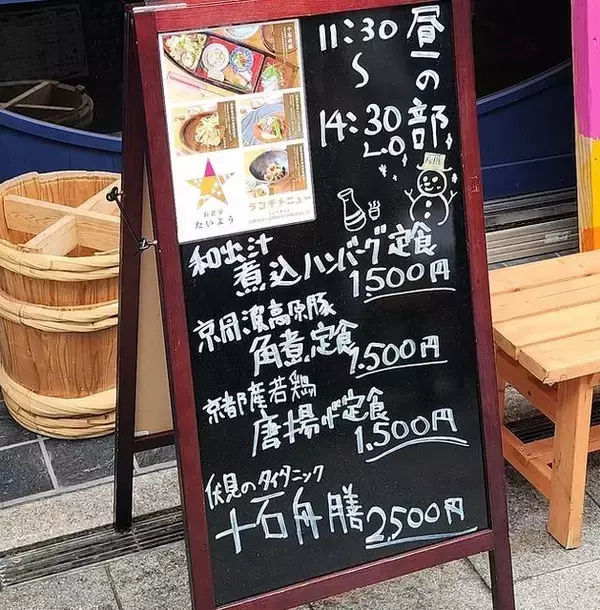 昼の部
11:30
〜
14:30
L.O
和出汁
煮込ハンバーグ定食
1,500円
京丹波高原豚
角煮定食
1,500円
京都産若鶏
唐揚げ定食
1,500円
伏見のタイタニック
十石舟膳
2,500円
十石舟膳
お食事処
たいよう
ランチメニュー